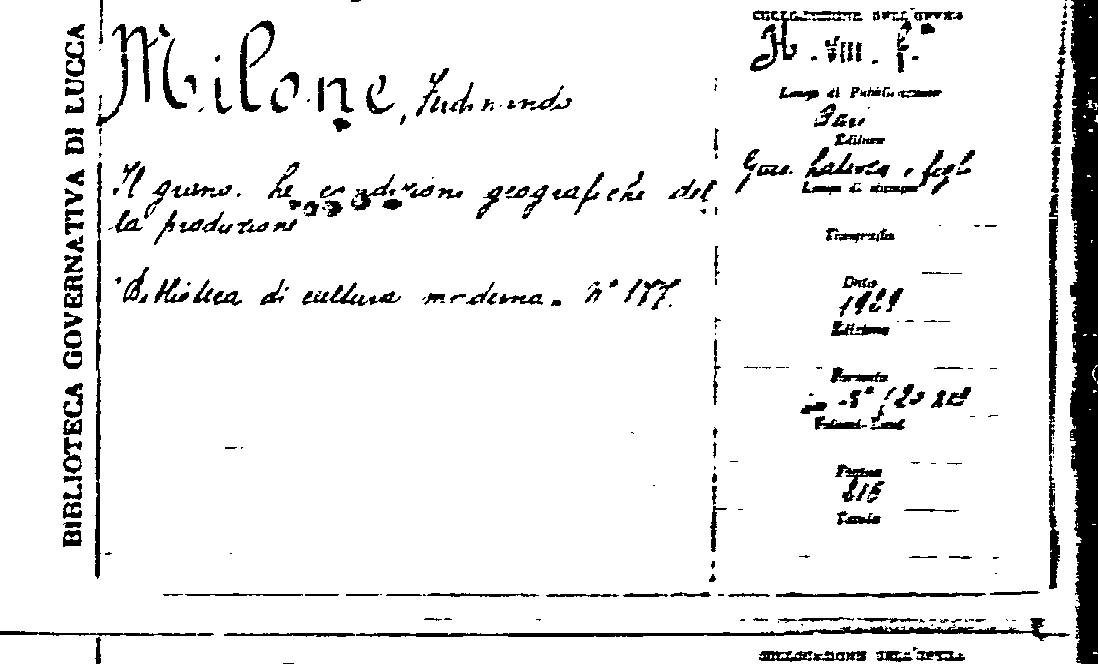 BIBLIOTECA GOVERNATIVA DI LUCCA
Milone, Ferdinando
Il grano. Le condizioni geografiche del
la produzione
Biblioteca di cultura moderna. N° 177.
COLLOCAZIONE DELL'OPERA
H. VIII. f.
Luogo di Pubblicazione
Bari
Editore
Gius. Laterza e figli
Luogo di stampa
Tipografia
Data
1929
Edizione
Formato
in-8° (20
Pagine
Tavole
COLLOCAZIONE DELL'OPERA